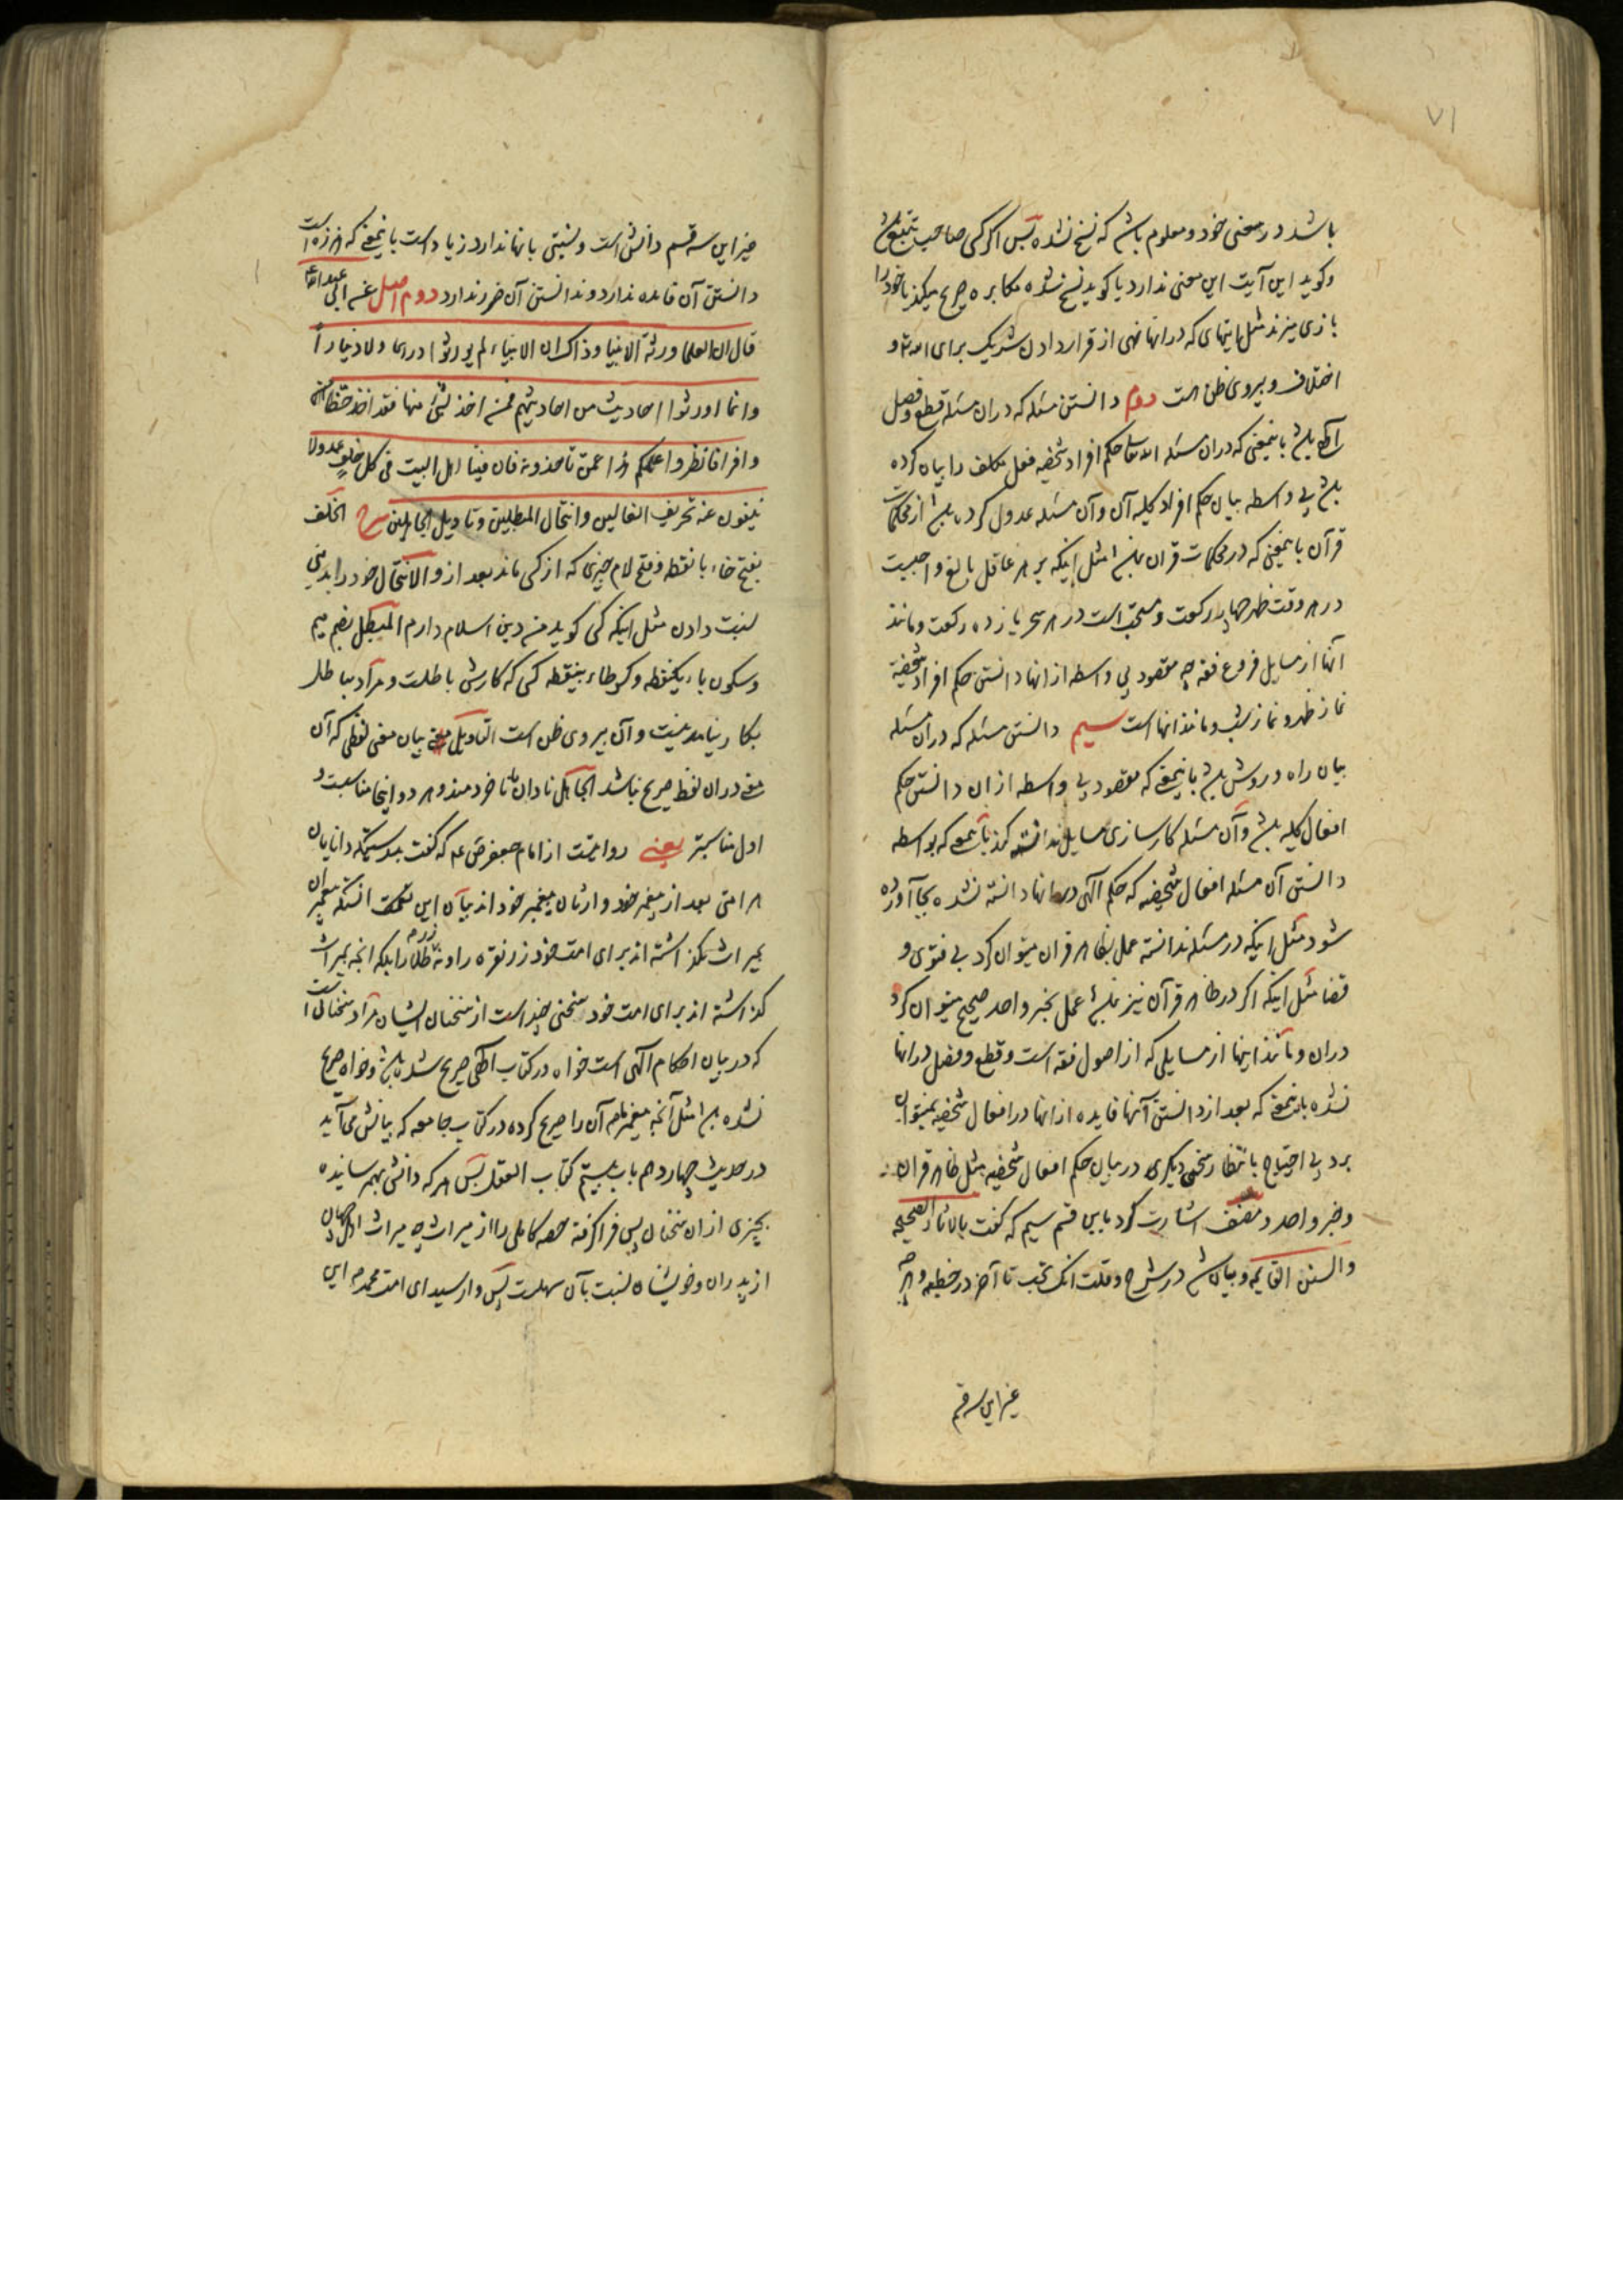 ۷۱
باشد در معنی خود و معلوم باشد که نسخ نشده پس اگر کسی صاحب تتبع باشد
و کوید این آیت این معنی ندارد یا کوید نسخ نشده مکابره صریح میکند با خود را
بازی میزند مثل ایتهای که در انها نهی از قرار دادن شریک برای الله تع و
اختلاف و پیروی ظن است دوم دانستن مسئله که دران مسئله قطع و فصل
باشد باینمعنی که دران مسئله الله تعالی حکم افراد شخصیه فعل مکلف را بیان کرده
باشد بی واسطه بیان حکم افراد کلیه آن و آن مسئله عدول کرده باشد از محکمات
قرآن باینمعنی که در محکمات قران باشد مثل اینکه بر هر عاقل بالغ واجبست
در هر وقت ظهر چهار رکعت و مستحب است در هر سحر یازده رکعت و مانند
آنها از مسایل فروع فقه چه مقصود بی واسطه از انها دانستن حکم افراد شخصیه
نماز ظهر و نماز شب و مانند انهاست سیم دانستن مسئله که دران مسئله
بیان راه و روش باشد باینمعنی که مقصود بی واسطه از ان دانستن حکم
افعال کلیه باشد و آن مسئله کارسازی مسایل ندانسته کند باینمعنی که بواسطه
دانستن آن مسئله افعال شخصیه که حکم آلهی در انها دانسته نشده بجا آورده
شود مثل اینکه در مسئله ندانسته عمل بظاهر قران میتوان کرد بی فتوی و
قضا مثل اینکه اکر در ظاهر قرآن نیز نباشد عمل بخبر واحد صحیح میتوان کرد
دران و مانند اینها از مسایلی که از اصول فقه است و قطع و فصل در انها
نشده باینمعنی که بعد از دانستن آنها فایده از انها در افعال شخصیه نمیتوان
برد بی احتیاج بانتظار سخن دیکری در بیان حکم افعال شخصیه مثل ظاهر قران
و خبر واحد و مصنف اشارت کرد باین قسم سیم که کفت بالاثار الصحیحه
والسنن القایمه و بیان شد در شرح و قلت انک تحب تا آخر در خطبه و هر چه
غیر این سه قسم
غیر این سه قسم دانش است و نسبتی بانها ندارد زیاد است باینمعنی که هرزه است
دانستن آن فایده ندارد و ندانستن آن ضرر ندارد دوم اصل عن ابی عبد الله ع
قال ان العلما ورثة الانبیا و ذاک ان الانبیاء لم یورثوا درهما ولا دینارا
وانما اورثوا احادیث من احادیثهم فمن اخذ بشئ منها فقد اخذ حظا
وافرا فانظروا علمکم هذا عمن تاخذونه فان فینا اهل البیت فی کل خلف عدولا
ینفون عنه تحریف الغالین وانتحال المبطلین وتاویل الجاهلین شرح الخلف
بفتح خاء بانقطه و فتح لام چیزی که از کسی ماند بعد از و الانتحال خود را بدینی
نسبت دادن مثل اینکه کسی کوید من دین اسلام دارم المبطل بضم میم
و سکون باء یکنقطه و کسر طاء بینقطه کسی که کارش باطلست و مراد بباطل
بکار نیامدنیست و آن پیروی ظن است التاویل بیان معنی لفظی که آن
معنی دران لفظ صریح نباشد الجاهل نادان یا ناخردمند و هر دو اینجا مناسبت و
اول مناسبتر یعنی روایتست از امام جعفر ص ع که کفت بدرستیکه دانایان
هر امتی بعد از پیغمبر خود وارثان پیغمبر خود اند بیان این سخن انستکه پیغمبران
بمیراث نکذاشته اند برای امت خود زر نقره را و نه زر طلا را بلکه انچه بمیراث
کذاشته اند برای امت خود سخنی چند است از سخنان ایشان مراد سخنانی است
که در بیان احکام آلهی است خواه در کتاب الهی صریح شده باشد و خواه صریح
نشده باشد مثل آنچه پیغمبر ما ص آن را صریح کرده در کتاب جامعه که بیانش می آید
در حدیث چهاردهم باب بیستم کتاب العقل پس هر که دانش بهم رسانیده
بچیزی از ان سخنان پس فرا کرفته حصه کاملی را از میراث چه میراث اهل جهان
از پدران و خویشان نسبت بآن سهلست پس وارسید ای امت محمد ص این